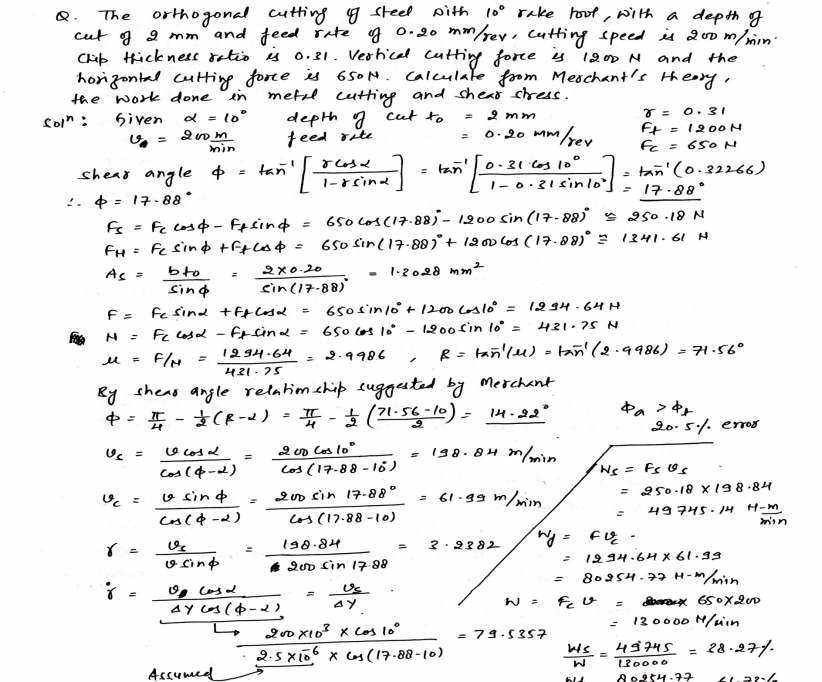 Q. The orthogonal cutting of steel with 10° rake tool, with a depth of
cut of 2 mm and feed rate of 0.20 mm/rev, cutting speed is 200 m/min.
Chip thickness ratio is 0.31. Vertical cutting force is 1200 N and the
horizontal cutting force is 650N. Calculate from Merchant's theory,
the work done in metal cutting and shear stress.
Solⁿ: Given α = 10° depth of cut t₀ = 2mm r = 0.31
v = 200 m/min feed rate = 0.20 mm/rev Ft = 1200N
Fc = 650 N
shear angle Φ = tan⁻¹ [r cosα / 1-r sinα] = tan⁻¹ [0.31 cos 10° / 1-0.31 sin 10°] = tan⁻¹ (0.32266) = 17.88°
∴ Φ = 17.88°
Fs = Fc cosΦ - Ft sinΦ = 650 cos(17.88)° - 1200 sin(17.88)° ≅ 250.18 N
FN = Fc sinΦ + Ft cosΦ = 650 sin(17.88)° + 1200 cos(17.88)° ≅ 1341.61 N
As = bt₀ / sinΦ = 2×0.20 / sin(17.88)° = 1.3028 mm²
F = Fc sinα + Ft cosα = 650 sin10° + 1200 cos10° = 1294.64 N
N = Fc cosα - Ft sinα = 650 cos 10° - 1200 sin 10° = 431.75 N
μ = F/N = 1294.64 / 431.75 = 2.9986 , β = tan⁻¹(μ) = tan⁻¹(2.9986) = 71.56°
By shear angle relationship suggested by Merchant
Φ = π/4 - 1/2 (β-α) = π/4 - 1/2 (71.56-10 / 2) = 14.22° Φa > Φt
20.5% error
vs = v cosα / cos(Φ-α) = 200 cos10° / cos(17.88-10) = 198.84 m/min
Ws = Fs vs
vc = v sinΦ / cos(Φ-α) = 200 sin 17.88° / cos(17.88-10) = 61.99 m/min
= 250.18 × 198.84
= 49745.14 N-m/min
γ = vs / v sinΦ = 198.84 / 200 sin 17.88 = 3.2382
Wf = F vc
= 1294.64 × 61.99
= 80254.77 N-m/min
γ̇ = v cosα / ΔY cos(Φ-α) = vs / ΔY
W = Fc v = 650×200
= 130000 N/min
200×10³ × cos 10° / 2.5×10⁻⁶ × cos(17.88-10) = 79.5357
Ws / W = 49745 / 130000 = 38.27%
Assumed
80254.77